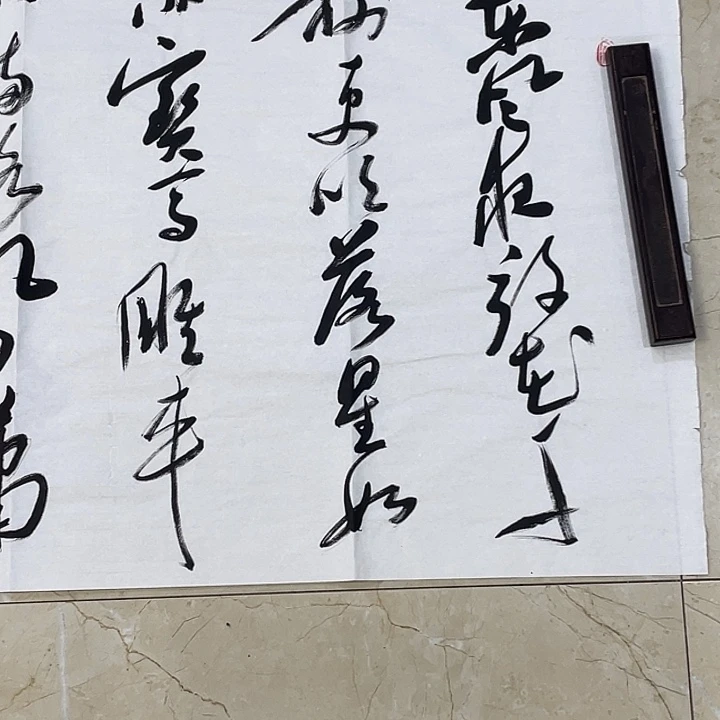 東風夜放花千
樹更吹落星如
雨寶馬雕車